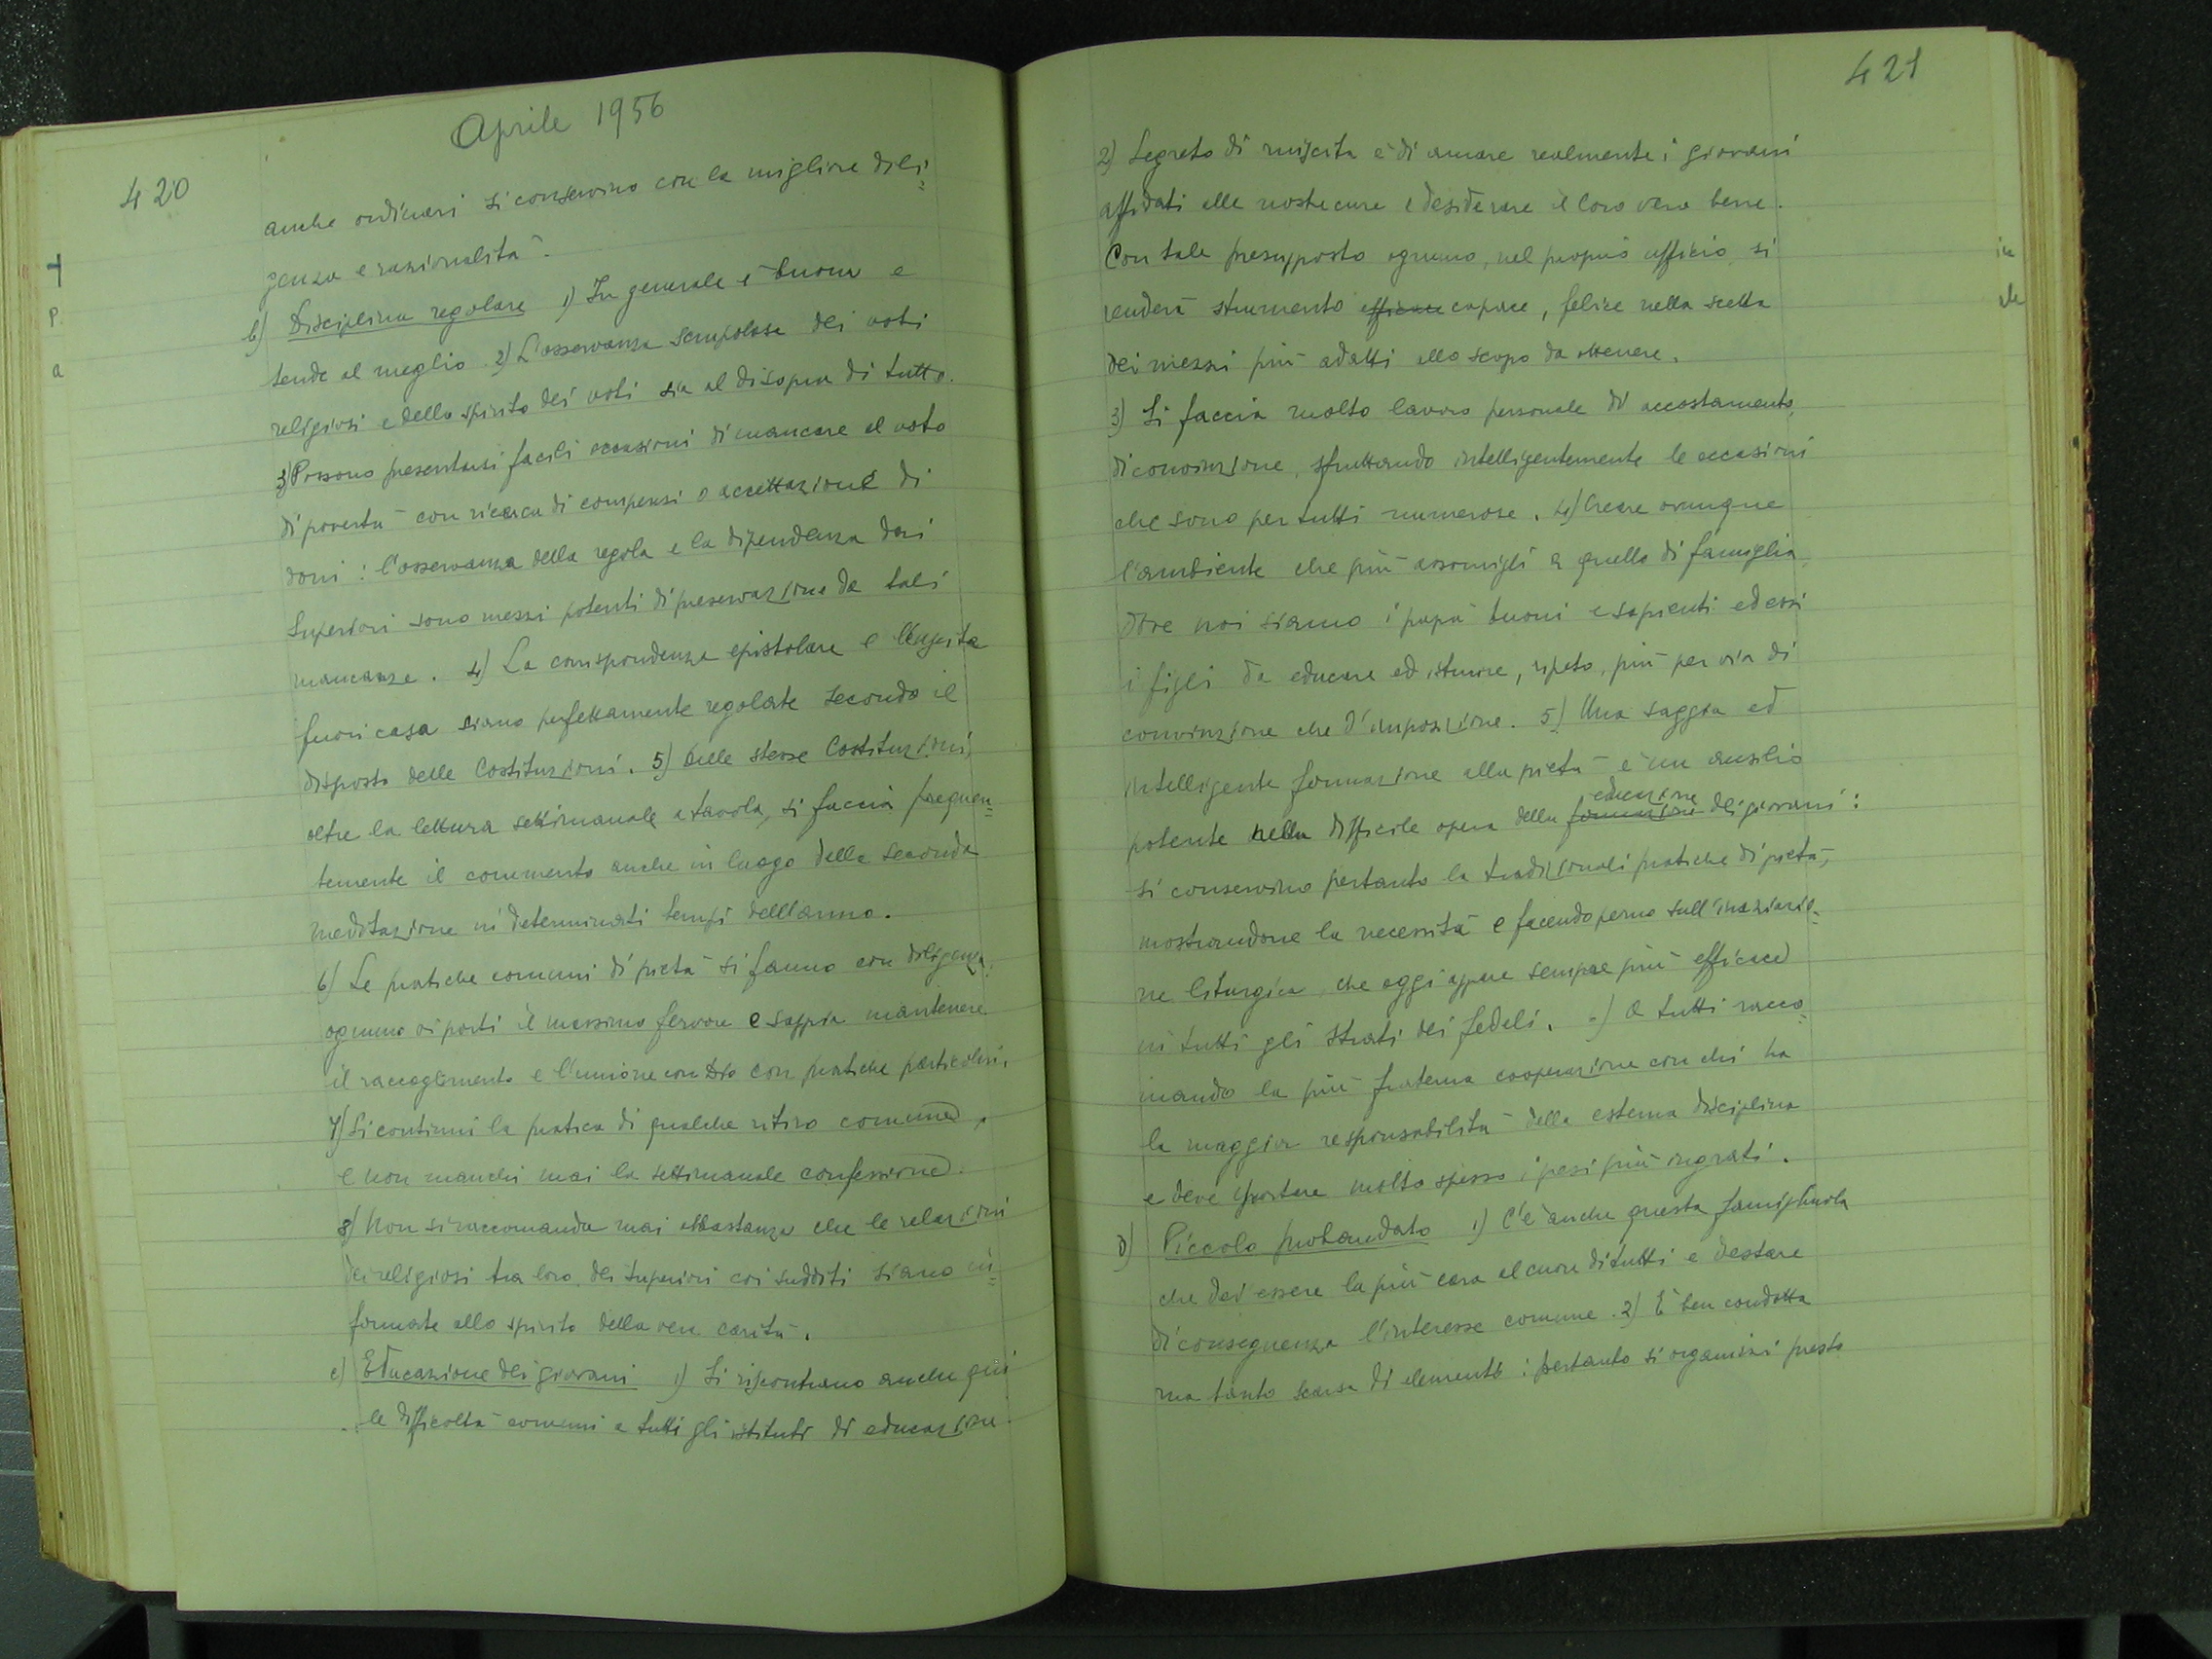 420
Aprile 1956
anche ordinari si conservino con la migliore dili=
genza e razionalità.
b) Disciplina regolare 1) In generale è buona e
tende al meglio. 2) L'osservanza scrupolosa dei voti
religiosi e dello spirito dei voti sia al disopra di tutto.
3) Possono presentarsi facili occasioni di mancare al voto
di povertà con ricerca di compensi o accettazione di
doni: l'osservanza della regola e la dipendenza dai
Superiori sono mezzi potenti di preservazione da tali
mancanze. 4) La corrispondenza epistolare e l'uscita
fuori casa siano perfettamente regolate secondo il
disposto delle Costituzioni. 5) Delle stesse Costituzioni,
oltre la lettura settimanale a tavola, si faccia frequen=
temente il commento anche in luogo della seconda
meditazione in determinati tempi dell'anno.
6) Le pratiche comuni di pietà si fanno con diligenza:
ognuno vi porti il massimo fervore e sappia mantenere
il raccoglimento e l'unione con Dio con pratiche particolari.
7) Si continui la pratica di qualche ritiro comune,
e non manchi mai la settimanale confessione.
8) Non si raccomanda mai abbastanza che le relazioni
dei religiosi tra loro, dei Superiori coi sudditi siano in=
formate allo spirito della vera carità.
c) Educazione dei giovani 1) Si riscontrano anche qui
le difficoltà comuni a tutti gli istituti di educazione.
421
2) Segreto di riuscita è di amare realmente i giovani
affidati alle nostre cure e desiderare il loro vero bene.
Con tale presupposto ognuno, nel proprio ufficio, si
renderà strumento efficace capace, felice nella scelta
dei mezzi più adatti allo scopo da ottenere.
3) Si faccia molto lavoro personale di accostamento,
di convinzione, sfruttando intelligentemente le occasioni
che sono per tutti numerose. 4) Creare ovunque
l'ambiente che più assomigli a quello di famiglia,
dove noi siamo i papà buoni e sapienti ed essi
i figli da educare ed istruire, ripeto, più per via di
convinzione che d'imposizione. 5) Una saggia ed
intelligente formazione alla pietà è un ausilio
educazione
potente nella difficile opera della formazione dei giovani:
si conservino pertanto le tradizionali pratiche di pietà,
mostrandone la necessità e facendo perno sull'inziazio=
ne liturgica, che oggi appare sempre più efficace
in tutti gli strati dei fedeli. -) A tutti racco=
mando la più fraterna cooperazione con chi ha
la maggior responsabilità della esterna disciplina
e deve portare molto spesso i pesi più ingrati.
d) Piccolo probandato 1) C'è anche questa famigliuola
che dev'essere la più cara al cuore di tutti e destare
di conseguenza l'interesse comune. 2) È ben condotta
ma tanto scarsa di elementi: pertanto si organizzi presto